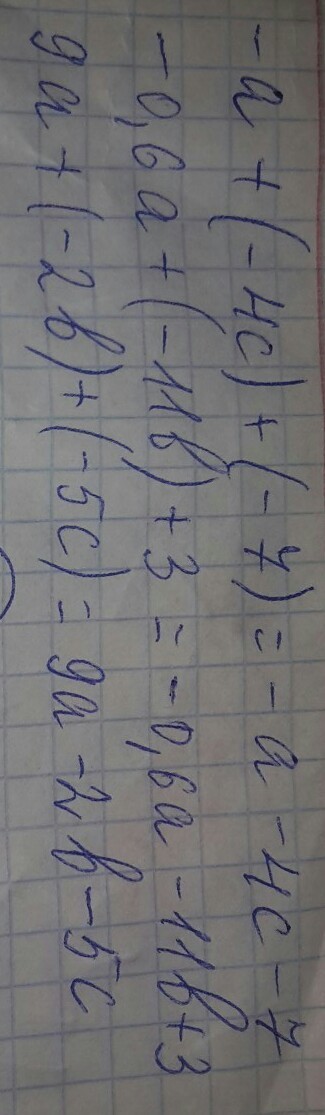 -a + (-4c) + (-7) = -a - 4c - 7
-0,6a + (-11b) + 3 = -0,6a - 11b + 3
9a + (-2b) + (-5c) = 9a - 2b - 5c